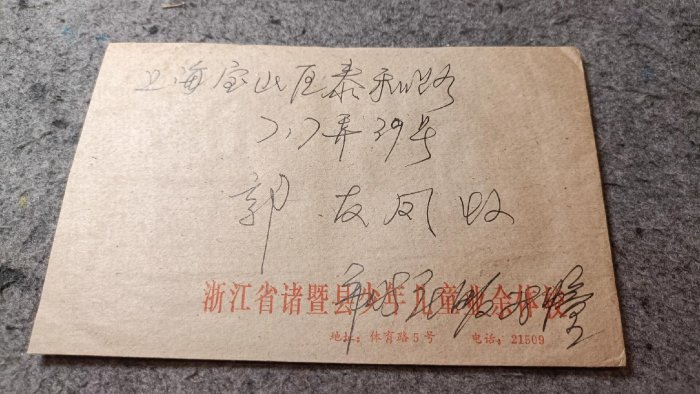 上海宝山区泰和路
717弄39号
郭友凤收
浙江省诸暨县少年儿童业余体校
地址：体育路5号 电话：21509